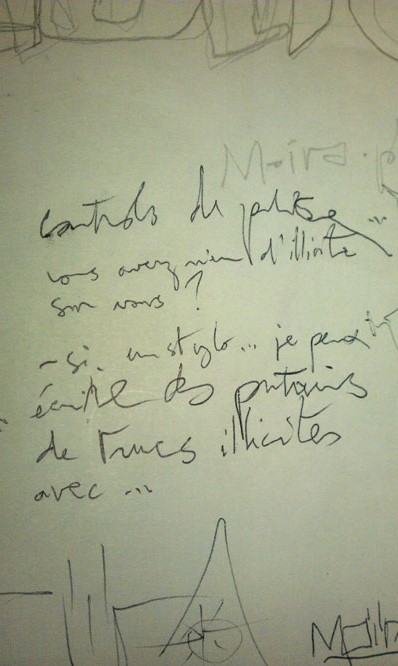 Moira.p
controls de police ...
vous avez rien d'illicite
sur vous ?
- si. un stylo... je peux
écrire des putains
de trucs illicites
avec ...